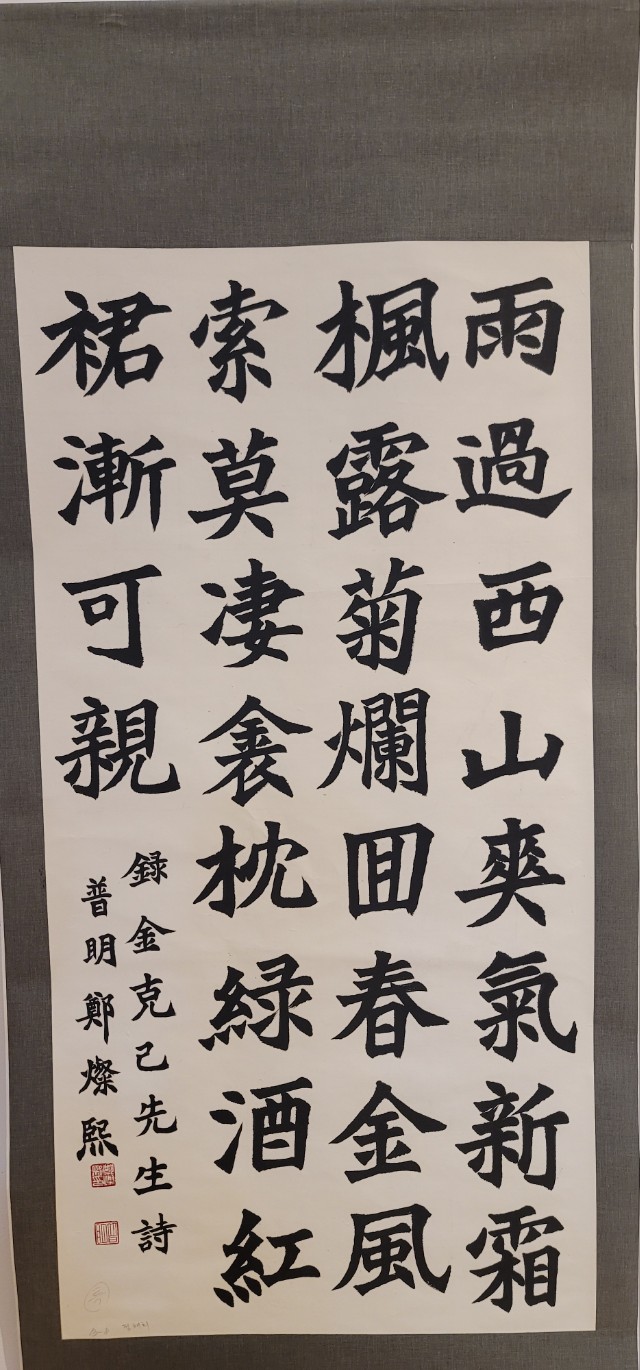 雨過西山爽氣新霜
楓露菊爛囬春金風
索莫凄衾枕緑酒紅
裙漸可親
録金克己先生詩
普明鄭燦熙